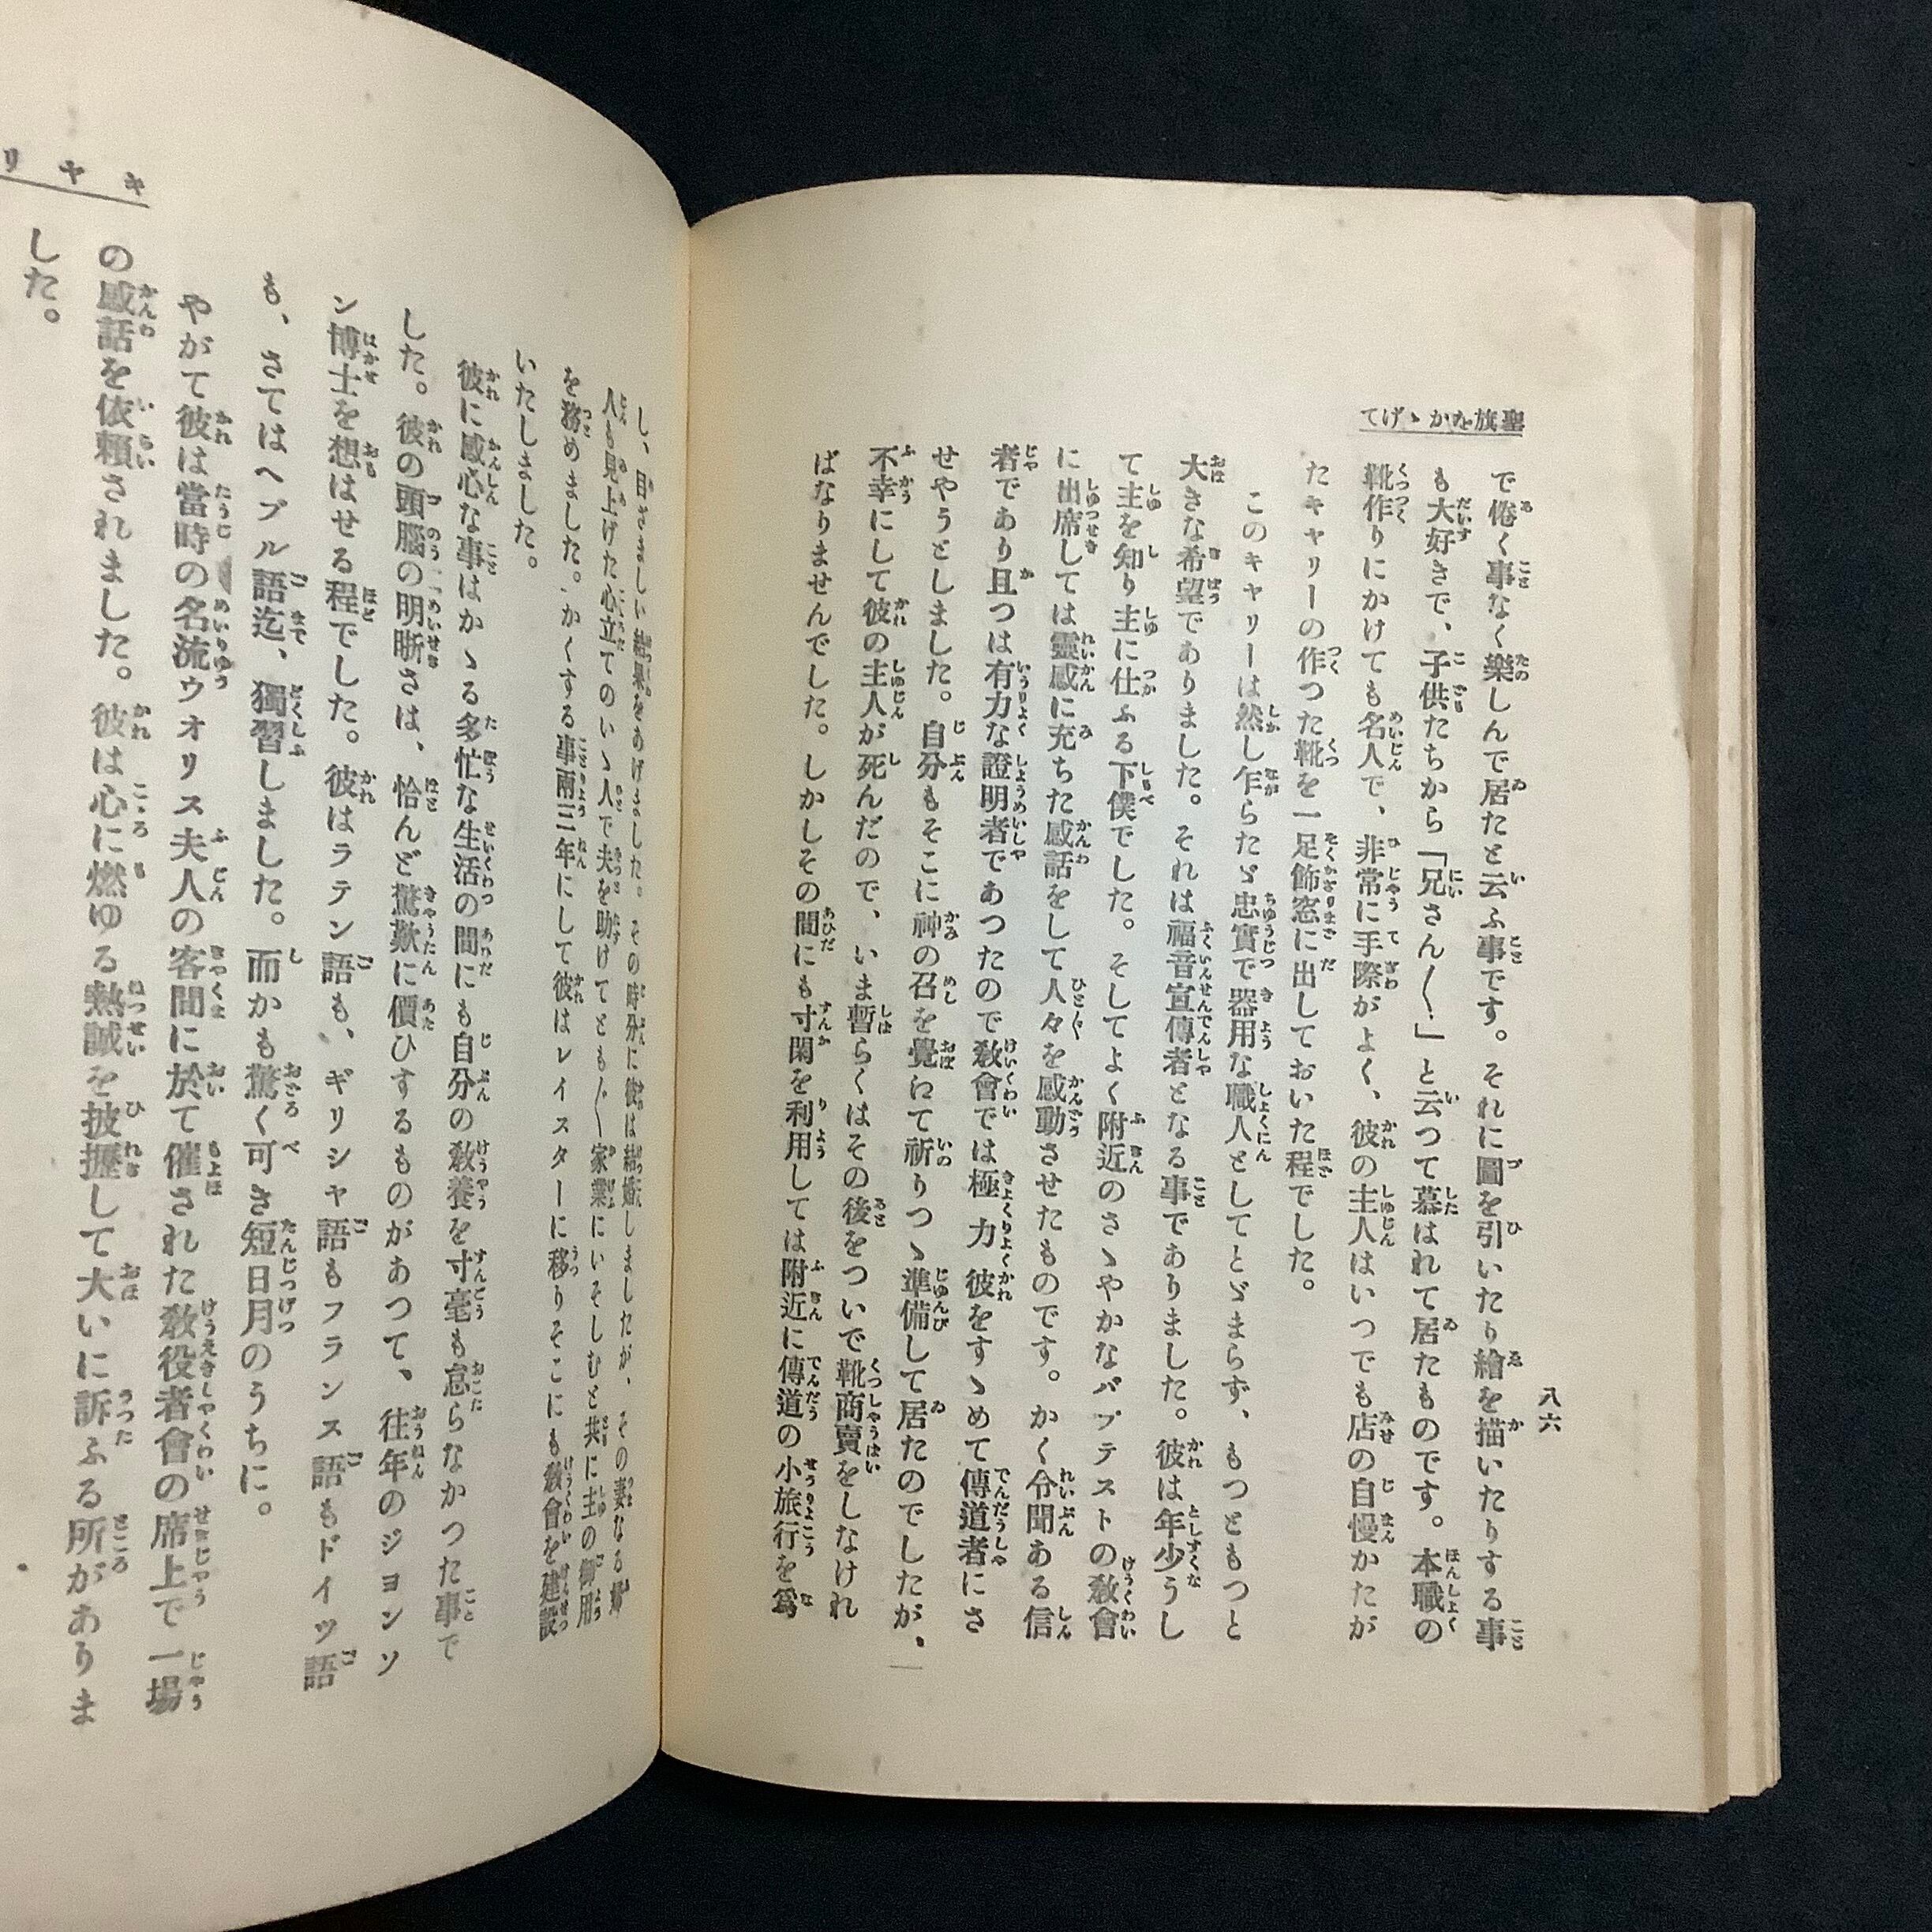 聖旗をかゝげて
八六
で倦く事なく樂しんで居たと云ふ事です。それに圖を引いたり繪を描いたりする事
も大好きで、子供たちから「兄さん〱」と云つて慕はれて居たものです。本職の
靴作りにかけても名人で、非常に手際がよく、彼の主人はいつでも店の自慢かたが
たキャリーの作つた靴を一足飾窓に出しておいた程でした。
このキャリーは然し乍らたゞ忠實で器用な職人としてとゞまらず、もつともつと
大きな希望でありました。それは福音宣傳者となる事でありました。彼は年少うし
て主を知り主に仕ふる下僕でした。そしてよく附近のさゝやかなバプテストの敎會
に出席しては靈感に充ちた感話をして人々を感動させたものです。かく令聞ある信
者であり且つは有力な證明者であつたので敎會では極力彼をすゝめて傳道者にさ
せやうとしました。自分もそこに神の召を覺にて祈りつゝ準備して居たのでしたが、
不幸にして彼の主人が死んだので、いま暫らくはその後をついで靴商賣をしなけれ
ばなりませんでした。しかしその間にも寸閑を利用しては附近に傳道の小旅行を爲
キャリ
し、目さましい結果をあげました。その時分に彼は結婚しましたが、その妻なる
人も見上げた心立てのいゝ人で夫を助けてとも〲家業にいそしむと共に主の御用
を務めました。かくする事兩三年にして彼はレイスターに移りそこにも敎會を建設
いたしました。
彼に感心な事はかゝる多忙な生活の間にも自分の敎養を寸毫も怠らなかつた事で
した。彼の頭腦の明晣さは、恰んど驚歎に價ひするものがあつて、往年のジヨンソ
ン博士を想はせる程でした。彼はラテン語も、ギリシャ語もフランス語もドイツ語
も、さてはヘブル語迄、獨習しました。而かも驚く可き短日月のうちに。
やがて彼は當時の名流ウオリス夫人の客間に於て催された敎役者會の席上で一場
の感話を依賴されました。彼は心に燃ゆる熱誠を披瀝して大いに訴ふる所がありま
した。